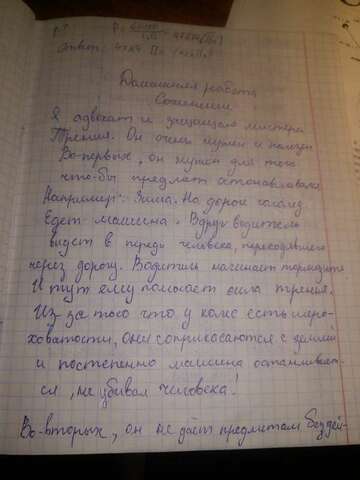 Ответ:
Домашняя работа
Сочинение
Я адвокат и защищаю мистера
Трения. Он очень нужен и полезен
Во-первых, он нужен для того
что-бы предмет останавливался.
Например: Зима. На дороге гололёд
Едет машина. Вдруг водитель
видет в переди человека, переходящего
через дорогу. Водитель начинает тормозить
И тут ему помогает сила трения.
Из-за того что у колёс есть шеро-
ховатости, они соприкасаются с землёй
и постепенно машина останавливает-
ся, не убивая человека!
Во-вторых, он не даёт предметам бездей-